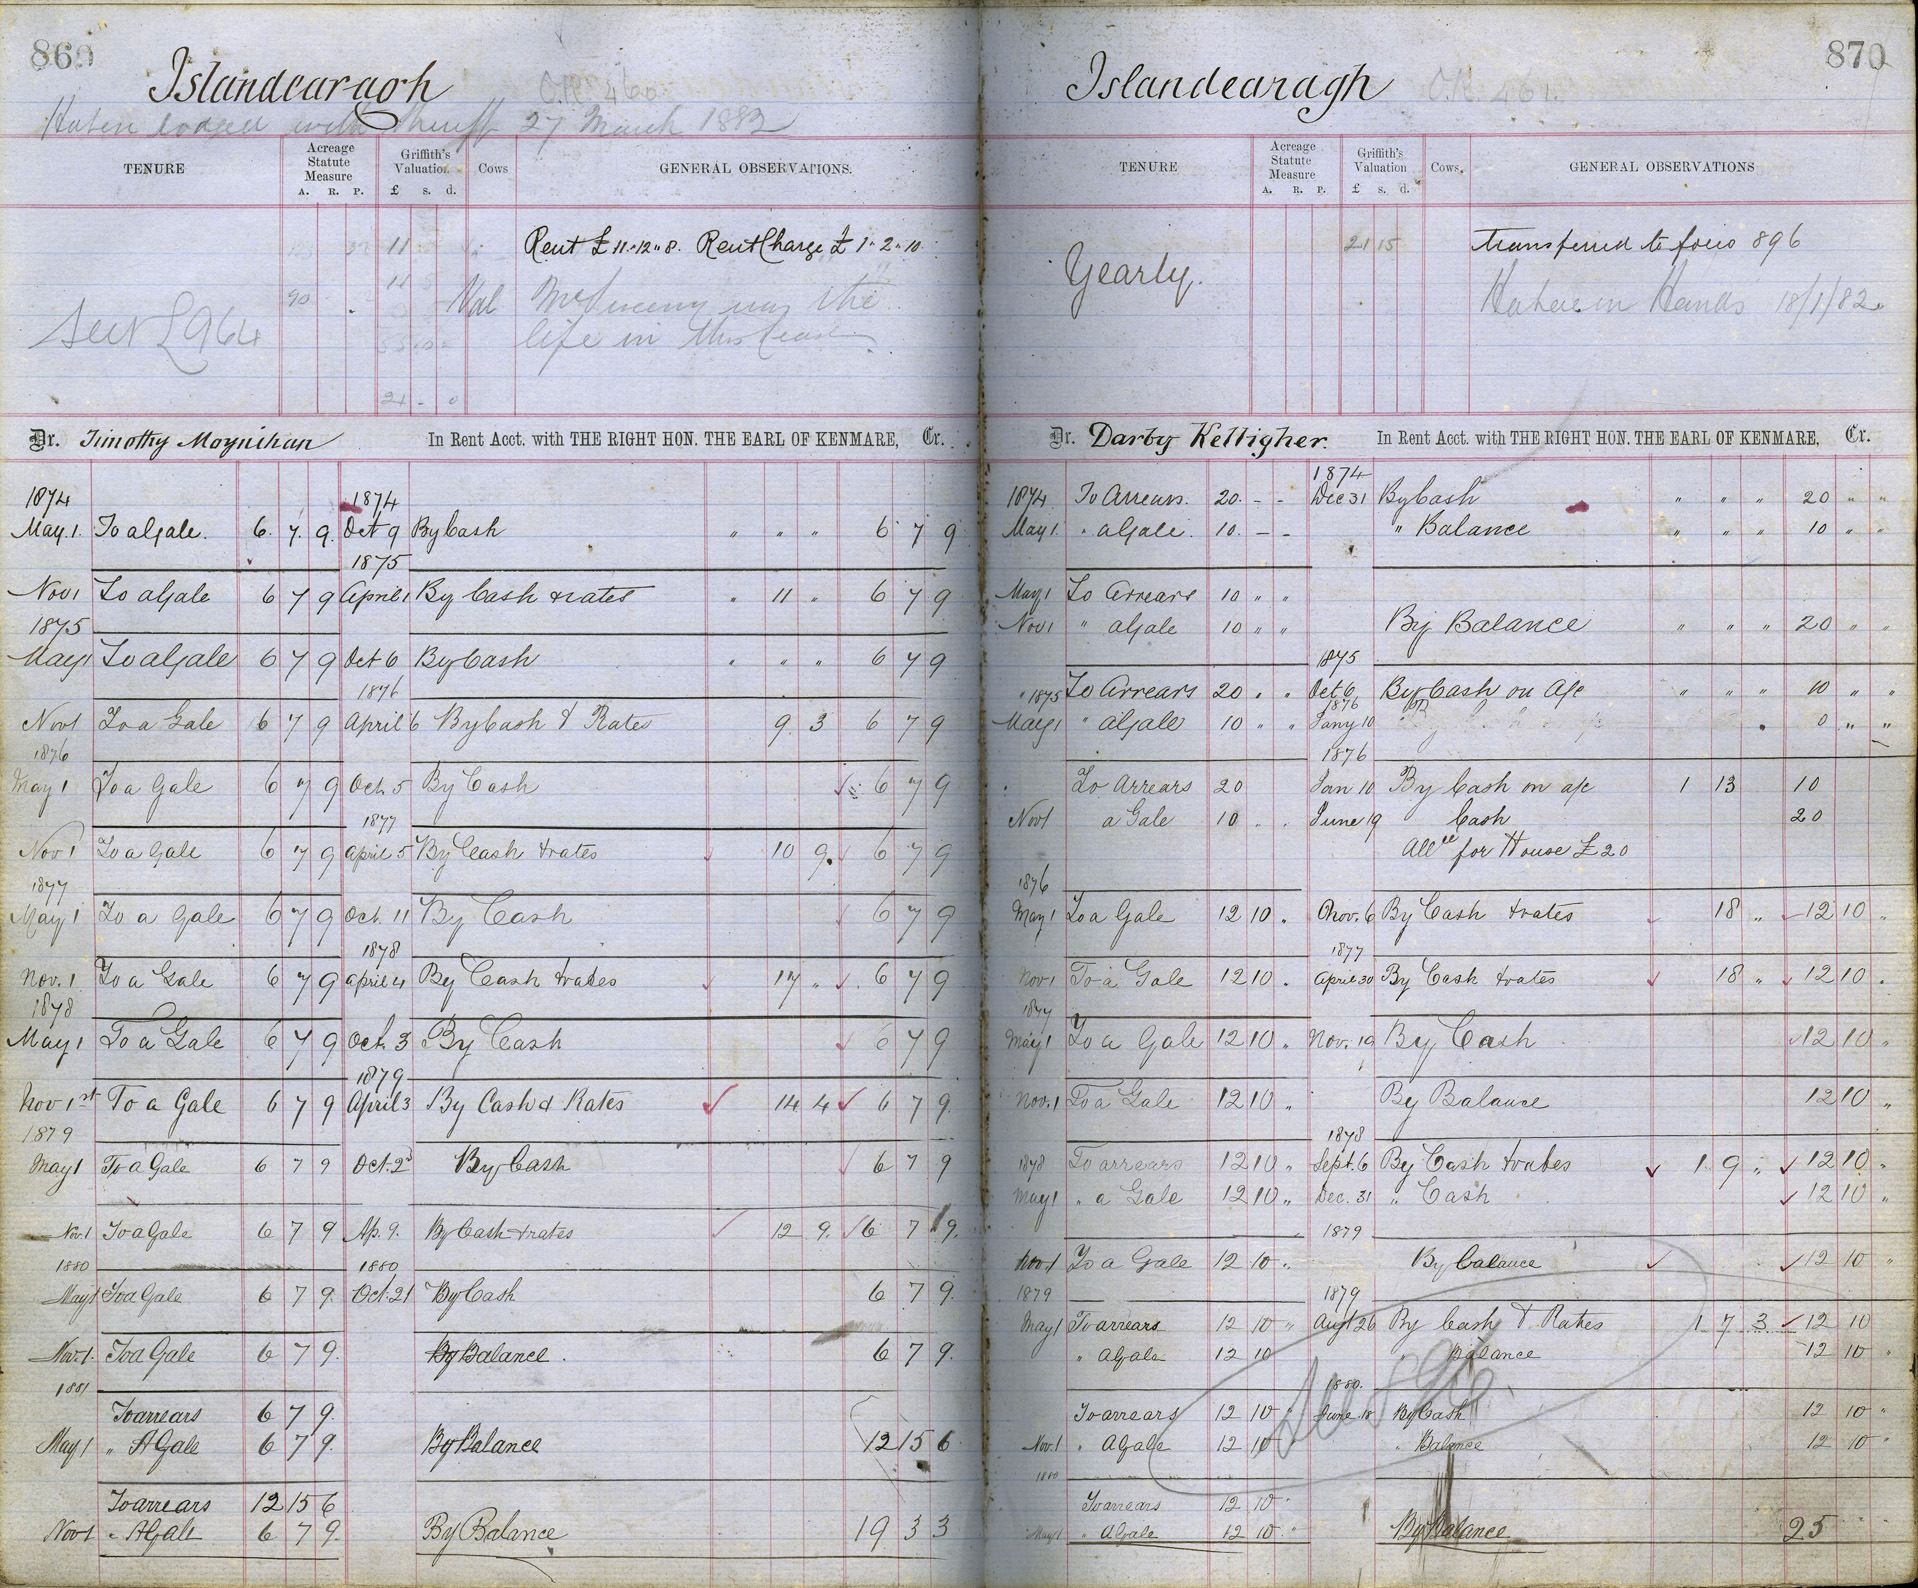 869
Islandearagh
O.R. 460
Habere lodged with Sheriff 27 March 1882
TENURE
Acreage Statute Measure
A. R. P.
Griffith's Valuation
£ s. d.
Cows
GENERAL OBSERVATIONS.
11
Rent £11"12"8. Rent Charge £1"2"10
11
90
Val
was the
life in this lease
See £964
21 - 0
Dr. Timothy Moynihan In Rent Acct. with THE RIGHT HON. THE EARL OF KENMARE, Cr.
1874 1874
May 1. To a Gale. 6. 7. 9. Oct 9 By Cash " " " 6 7 9
1875
Nov 1 To a Gale 6 7 9 April 1 By Cash & rates " 11 " 6 7 9
1875
May 1 To a Gale 6 7 9 Oct 6 By Cash " " " 6 7 9
1876
Nov 1 To a Gale 6 7 9 April 6 By Cash & Rates 9 3 6 7 9
1876
May 1 To a Gale 6 7 9 Oct. 5 By Cash 6 7 9
1877
Nov 1 To a Gale 6 7 9 April 5 By Cash & rates 10 9. 6 7 9
1877
May 1 To a Gale 6 7 9 Oct. 11 By Cash 6 7 9
1878
Nov. 1 To a Gale 6 7 9 April 4 By Cash & rates 17 " 6 7 9
1878
May 1 To a Gale 6 7 9 Oct. 3 By Cash 6 7 9
1879
Nov 1st To a Gale 6 7 9 April 3 By Cash & Rates 14 4 6 7 9
1879
May 1 To a Gale 6 7 9 Oct. 2d By Cash 6 7 9
Nov. 1 To a Gale 6 7 9 Ap. 9. By Cash & rates 12 9. 6 7 9.
1880 1880
May 1 To a Gale 6 7 9. Oct. 21 By Cash 6 7 9.
Nov. 1. To a Gale 6 7 9. By Balance. 6 7 9.
1881
To arrears 6 7 9.
May 1 " A Gale 6 7 9. By Balance 12 15 6
To arrears 12 15 6
Nov 1 " A Gale 6 7 9. By Balance 19 3 3
870
Islandearagh
O.R. 461.
TENURE
Acreage Statute Measure
A. R. P.
Griffith's Valuation
£ s. d.
Cows.
GENERAL OBSERVATIONS
21 15
Transferred to folio 896
Yearly.
Habere in Hands 18/1/82.
Dr. Darby Kelligher. In Rent Acct. with THE RIGHT HON. THE EARL OF KENMARE, Cr.
1874
1874 To Arrears. 20. - - Dec 31 By Cash " " " 20 " "
May 1. " a Gale. 10. - - " Balance " " " 10 " "
May 1 To Arrears 10 " "
Nov 1 " a Gale 10 " " By Balance " " " 20 " "
1875
" 1875 To Arrears 20 " " Oct 6 By Cash on A/c " " " 10 " "
1876
May 1 " a Gale 10 " " Jany 10 0 " "
1876
To Arrears 20 Jan 10 By Cash on a/c 1 13 10
Nov 1 a Gale 10 . . June 19 Cash 20
Allce for House £20
1876
May 1 To a Gale 12 10 " Nov. 6 By Cash & rates 18 " 12 10 "
1877
Nov 1 To a Gale 12 10 . April 30 By Cash & rates 18 " 12 10 .
1877
May 1 To a Gale 12 10 " Nov. 19 By Cash 12 10 "
Nov. 1 To a Gale 12 10 " By Balance 12 10 "
1878
1878 To arrears 12 10 " Sept. 6 By Cash & rates 1 9 " 12 10 "
May 1 " a Gale 12 10 " Dec. 31 " Cash 12 10 "
1879
Nov 1 To a Gale 12 10 " By balance 12 10 "
1879 1879
May 1 To arrears 12 10 " Augt 26 By Cash & Rates 1 7 3 12 10
" A Gale 12 10 Balance 12 10 "
1880.
To arrears 12 10 " June 18 By Cash 12 10 "
Nov. 1 " A Gale 12 10 " Balance 12 10 "
1880
To arrears 12 10 "
May 1 " A Gale 12 10 " By Balance 25